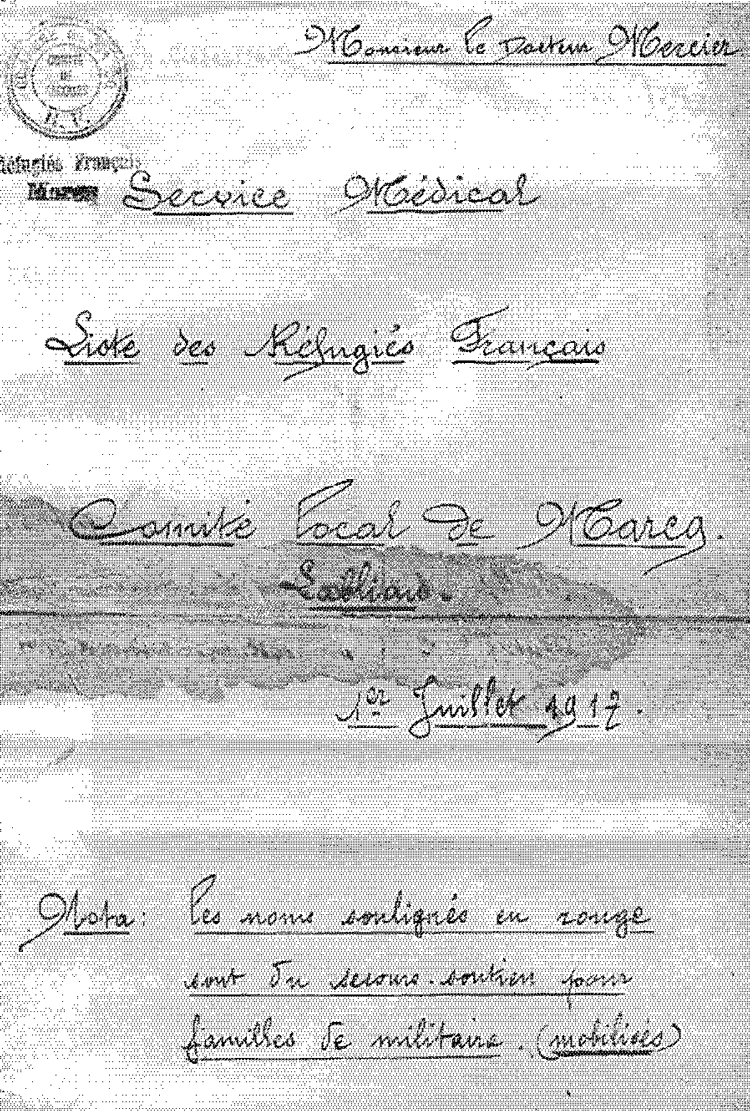 Monsieur le Docteur Mercier
COMITÉ
DE
SECOURS
Réfugiés Français
Marcq
Service Médical
Liste des Réfugiés Français
Comité local de Marcq.
Labliau.
1er Juillet 1917.
Nota: les noms soulignés en rouge
sont du secours-soutien pour
familles de militaire. (mobilisés)